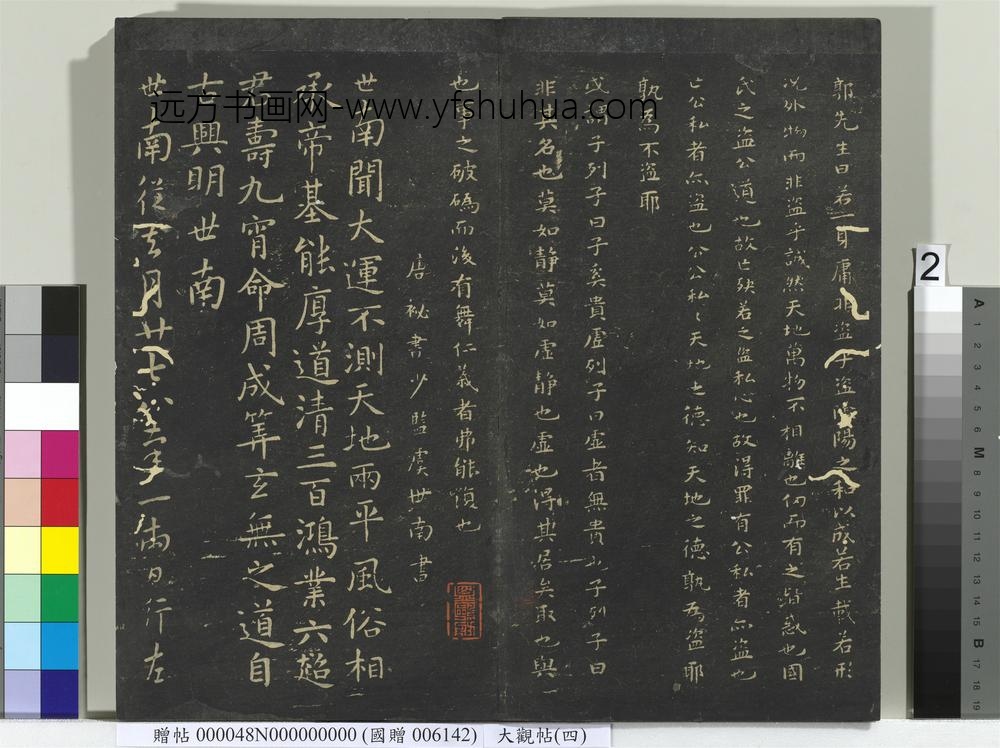 郭先生曰若一身庸非盜乎盜陰陽之和以成若生載若形
況外物而非盜乎誠然天地萬物不相離也仞而有之皆惑也國
氏之盜公道也故亡殃若之盜私心也故得罪有公私者亦盜也
亡公私者亦盜也公公私〻天地之德知天地之德孰為盜耶
孰為不盜耶
或謂子列子曰子奚貴虛列子曰虛者無貴也子列子曰
非其名也莫如靜莫如虛靜也虛也得其居矣取也與
也事之破碼而後有舞仁義者弗能復也
唐祕書少監虞世南書
世南聞大運不測天地兩平風俗相
承帝基能厚道清三百鴻業六超
君壽九霄命周成筭玄無之道自
古興明世南
世南從去月廿七八
年一兩日行左
远方书画网-www.yfshuhua.com
2
A 1 2 3 4 5 6 M 8 9 10 11 12 13 14 15 B 17 18 19
贈帖 000048N000000000 (國贈 006142) 大觀帖(四)